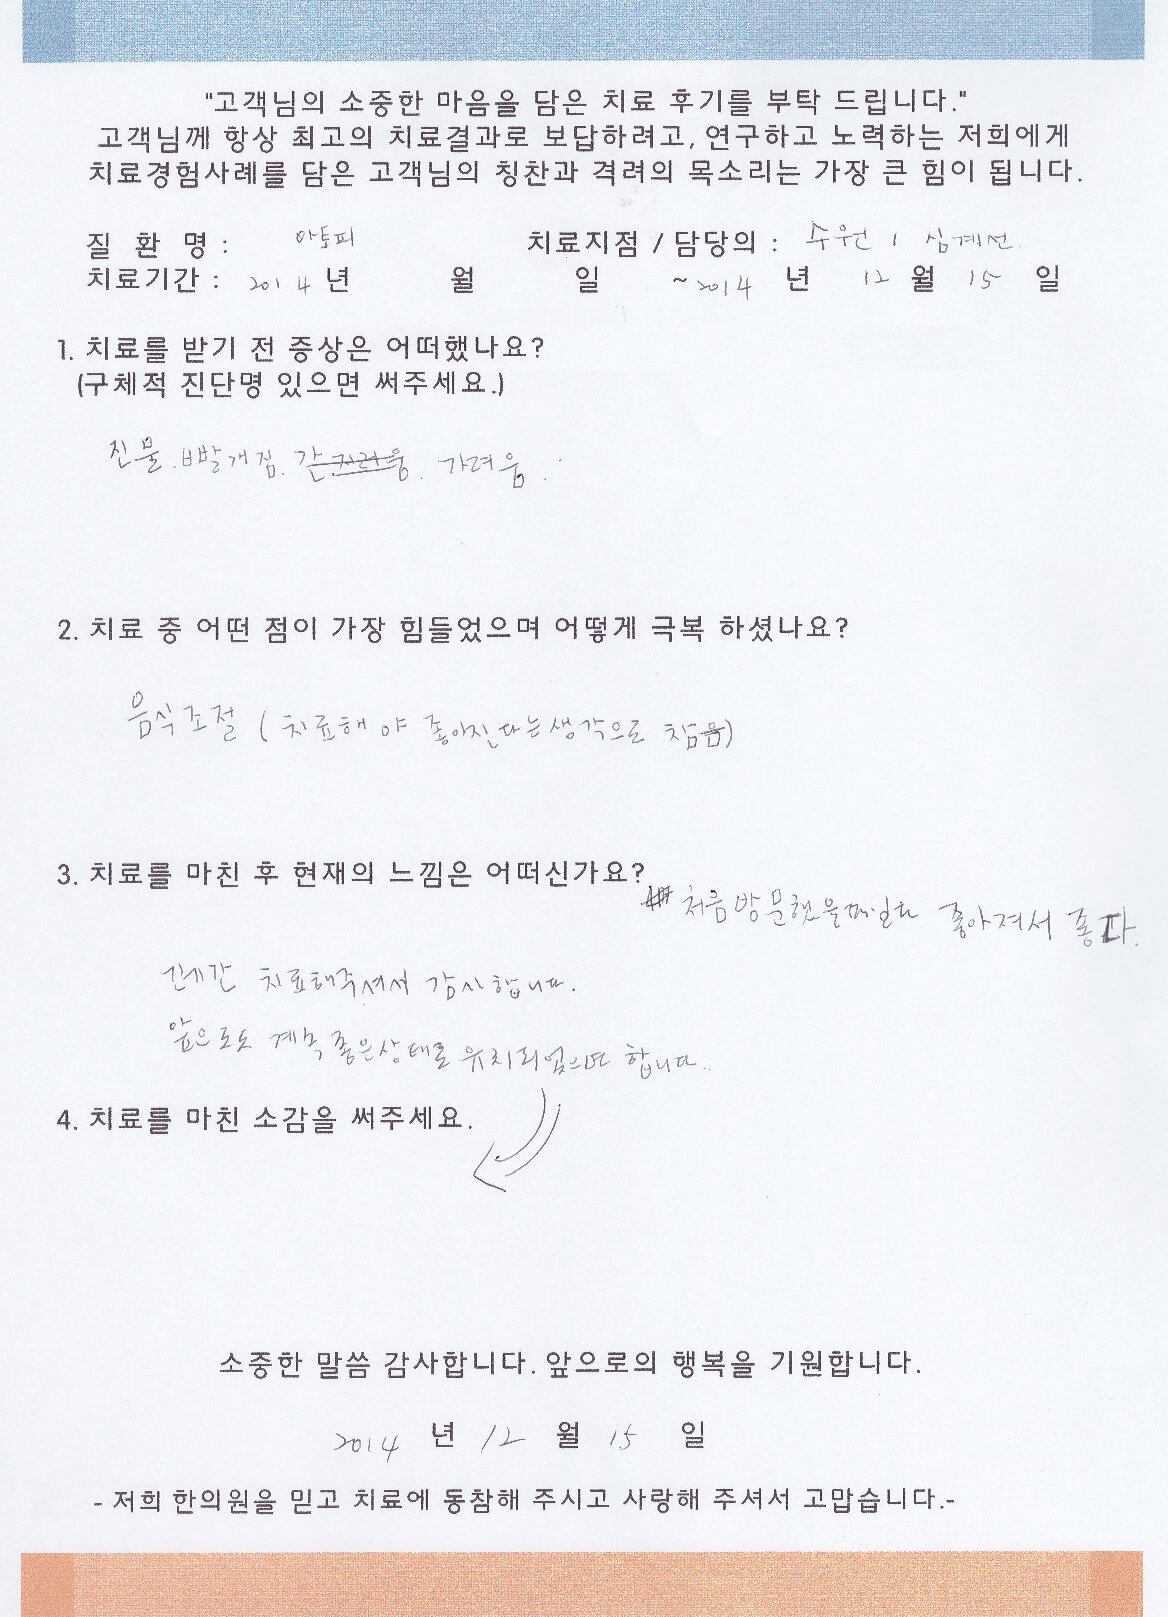 "고객님의 소중한 마음을 담은 치료 후기를 부탁 드립니다."
고객님께 항상 최고의 치료결과로 보답하려고, 연구하고 노력하는 저희에게
치료경험사례를 담은 고객님의 칭찬과 격려의 목소리는 가장 큰 힘이 됩니다.
질 환 명 : 아토피 치료지점 / 담당의 : 수원 / 심계선
치료기간 : 2014 년 월 일 ~ 2014 년 12 월 15 일
1. 치료를 받기 전 증상은 어떠했나요?
(구체적 진단명 있으면 써주세요.)
진물. 빨개짐. 가려움.
2. 치료 중 어떤 점이 가장 힘들었으며 어떻게 극복 하셨나요?
음식조절 (치료해야 좋아진다는생각으로 참음)
3. 치료를 마친 후 현재의 느낌은 어떠신가요?
처음방문했을때보다 좋아져서 좋다.
치료해주셔서 감사합니다.
앞으로도 계속 좋은상태로 유지되었으면 합니다..
4. 치료를 마친 소감을 써주세요.
소중한 말씀 감사합니다. 앞으로의 행복을 기원합니다.
2014 년 12 월 15 일
- 저희 한의원을 믿고 치료에 동참해 주시고 사랑해 주셔서 고맙습니다.-